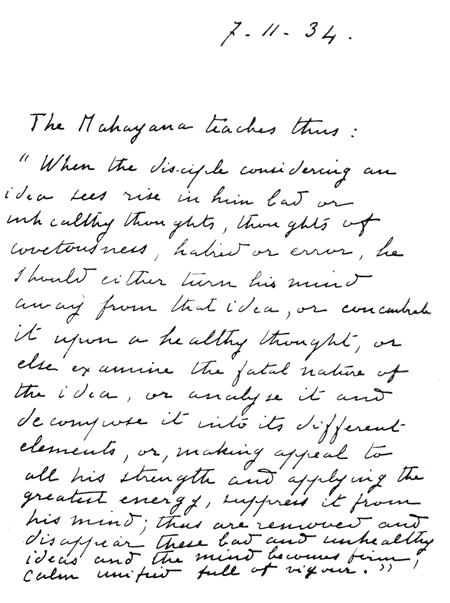 7-11-34.
The Mahayana teaches thus:
"When the disciple considering an
idea sees rise in him bad or
unhealthy thoughts, thoughts of
covetousness, hatred or error, he
should either turn his mind
away from that idea, or concentrate
it upon a healthy thought, or
else examine the fatal nature of
the idea, or analyse it and
decompose it into its different
elements, or, making appeal to
all his strength and applying the
greatest energy, suppress it from
his mind; thus are removed and
disappear these bad and unhealthy
ideas and the mind becomes firm,
calm unified full of vigour."